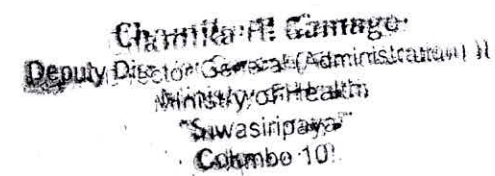 Chamika H. Gamage
Deputy Director General (Administration) II
Ministry of Health
"Suwasiripaya"
Colombo 10.